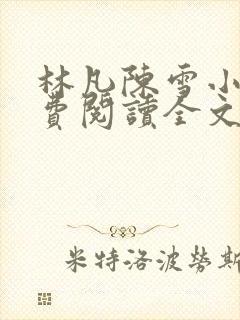 林凡陳雪小
費閱讀全文
米特洛波勞斯